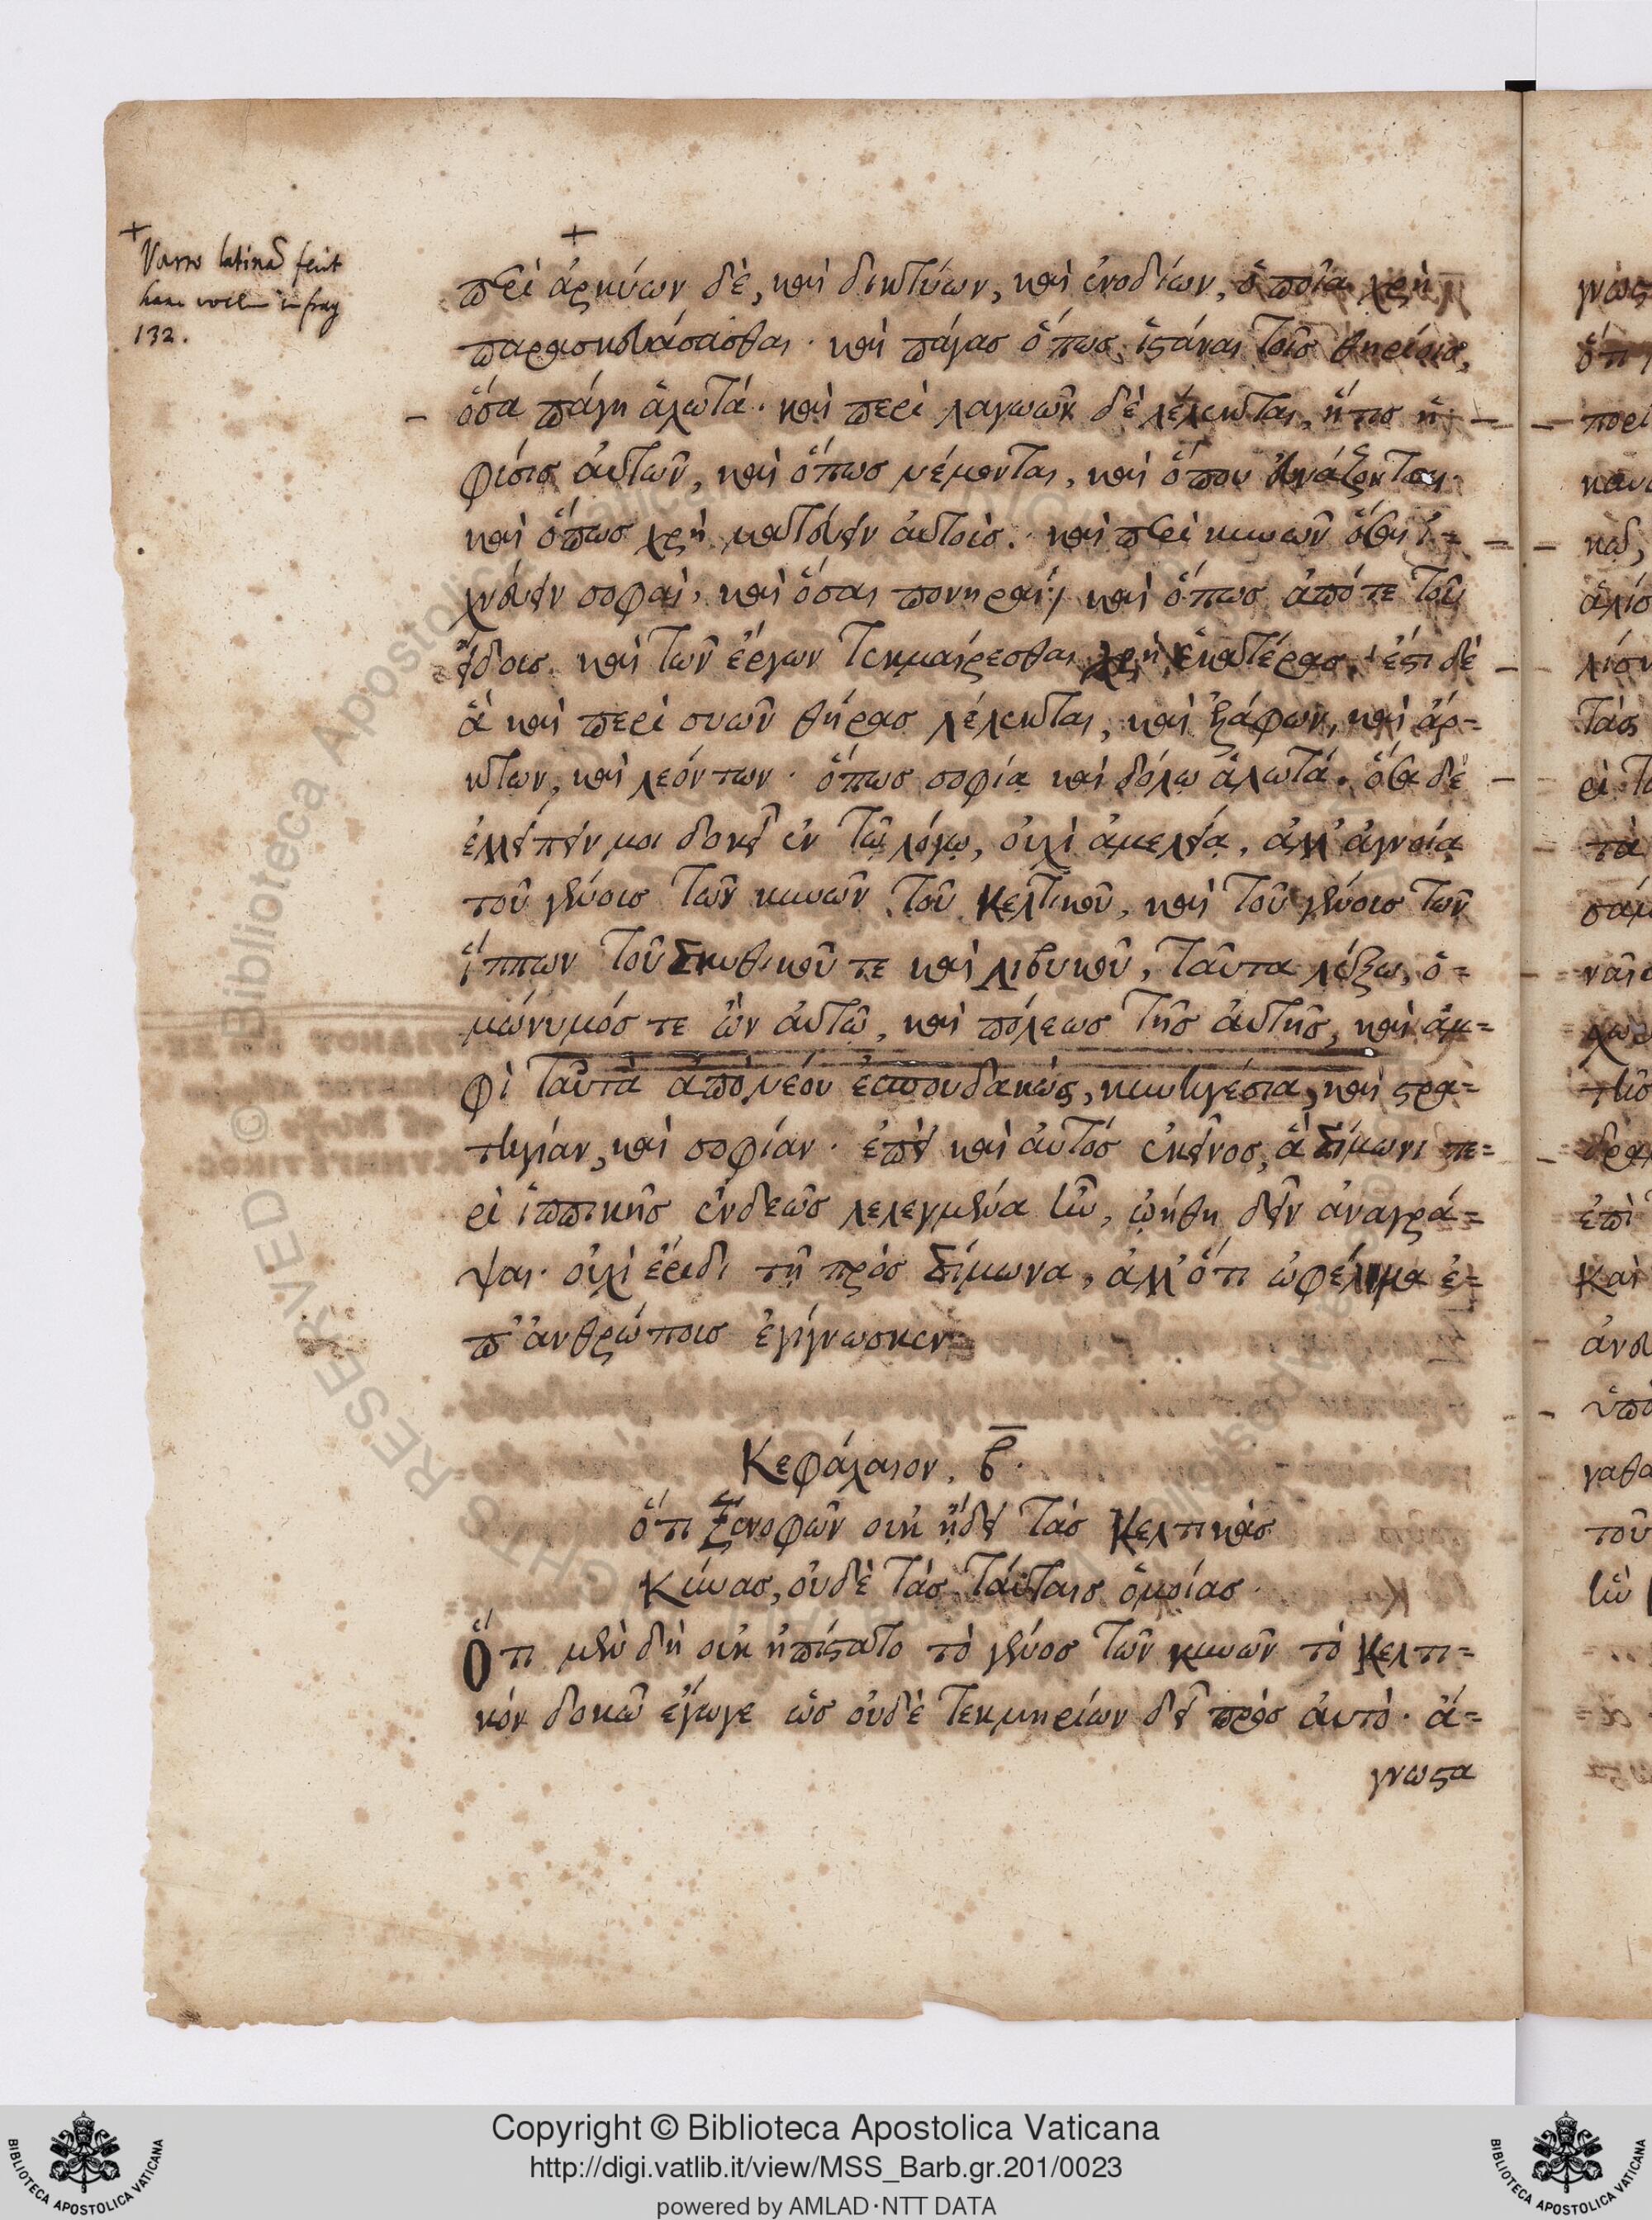 Varro latinas fecit
hanc vocem in frag
132.
περὶ ἀρκύων δὲ, καὶ δικτύων, καὶ ἐνοδίων, ὁποῖα χρὴ
παρασκευάσασθαι· καὶ πάγας ὅπως ἱστάναι τοῖς θηρίοις,
ὅσα πάγη ἁλωτά· καὶ περὶ λαγωῶν δὲ λέλεκται, ἥτις ἡ
φύσις αὐτῶν, καὶ ὅπως νέμονται, καὶ ὅπου
καὶ ὅπως χρὴ αὐτοῖς· καὶ περὶ κυνῶν ὅσαι ἰ=
χνεύειν σοφαὶ, καὶ ὅσαι πονηραί, καὶ ὅπως ἀπό τε τοῦ
εἴδους καὶ τῶν ἔργων τεκμαίρεσθαι χρὴ ἑκατέρας. ἔστι δὲ
ἃ καὶ περὶ συῶν θήρας λέλεκται, καὶ ἐλάφων, καὶ ἄρ=
κτων, καὶ λεόντων· ὅπως σοφίᾳ καὶ δόλῳ ἁλωτά. ὅσα δὲ
ἐλλείπειν μοι δοκεῖ ἐν τῷ λόγῳ, οὐχὶ ἀμελείᾳ, ἀλλ' ἀγνοίᾳ
τοῦ γένους τῶν κυνῶν τοῦ Κελτικοῦ, καὶ τοῦ γένους τῶν
ἵππων τοῦ Σκυθικοῦ τε καὶ Λιβυκοῦ, ταῦτα λέξω, ὁ=
μώνυμός τε ὢν αὐτῷ, καὶ πόλεως τῆς αὐτῆς, καὶ ἀμ=
φὶ ταῦτα ἀπὸ νέου ἐσπουδακώς, κυνηγέσια, καὶ στρα=
τηγίαν, καὶ σοφίαν· ἐπεὶ καὶ αὐτὸς ἐκεῖνος, ἃ Σίμωνι πε=
ρὶ ἱππικῆς ἐνδεῶς λελεγμένα ἦν, ᾠήθη δεῖν ἀναγρά=
ψαι· οὐχὶ ἔριδι τῇ πρὸς Σίμωνα, ἀλλ' ὅτι ὠφέλιμα ἐ=
π' ἀνθρώποις ἐγίγνωσκεν
Κεφάλαιον. β̅.
ὅτι Ξενοφῶν οὐκ ᾔδει τὰς Κελτικὰς
Κύνας, οὐδὲ τὰς ταύταις ὁμοίας.
Ὅτι μὲν δὴ οὐκ ἠπίστατο τὸ γένος τῶν κυνῶν τὸ Κελτι=
κὸν δοκῶ ἔγωγε ὡς οὐδὲ τεκμηρίων δεῖ πρὸς αὐτό· ἄ=
γνωστα
Copyright © Biblioteca Apostolica Vaticana
http://digi.vatlib.it/view/MSS_Barb.gr.201/0023
powered by AMLAD·NTT DATA